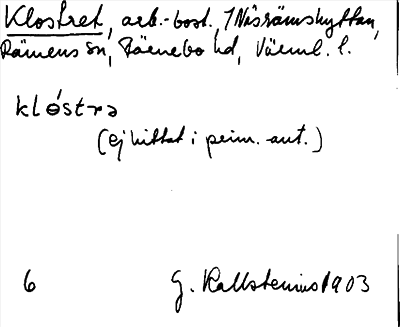 Klostret, arb.-bost. /Näsrämshyttan,
Rämens sn, Färnebo hd, Värml. l.
klóstrə
(ej hittat i prim. ant.)
6 G. Kallstenius 1903